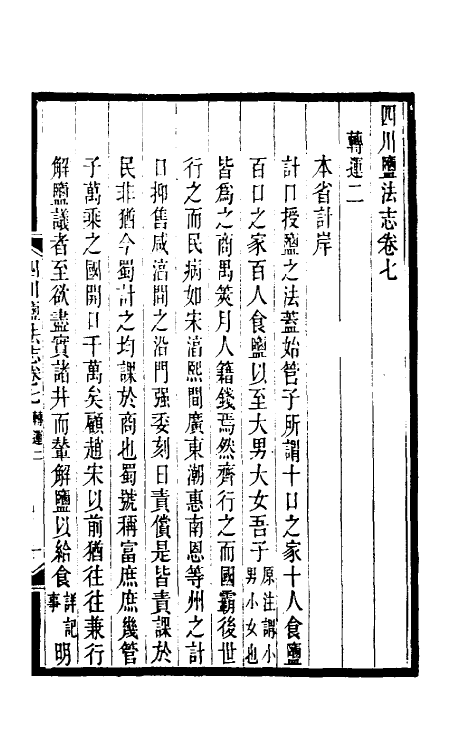 四川鹽法志卷七
轉運二
本省計岸
計口授鹽之法蓋始管子所謂十口之家十人食鹽
百口之家百人食鹽以至大男大女吾子原注謂小男小女也
皆為之商禺筴月人籍錢焉然齊行之而國霸後世
行之而民病如宋滈熙間廣東潮惠南恩等州之計
口抑售咸滈間之沿門强委刻日責償是皆責課於
民非猶今蜀計之均課於商也蜀號稱富庶庶幾管
子萬乘之國開口千萬矣顧趙宋以前猶往往兼行
解鹽議者至欲盡實諸井而輦解鹽以給食詳記事明
四川鹽法志卷七 轉運二 一